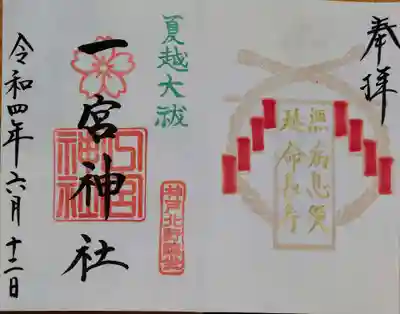 奉拝
無病息災
延命長寿
夏越大祓
一宮神社
一宮
神社
令和四年六月十二日